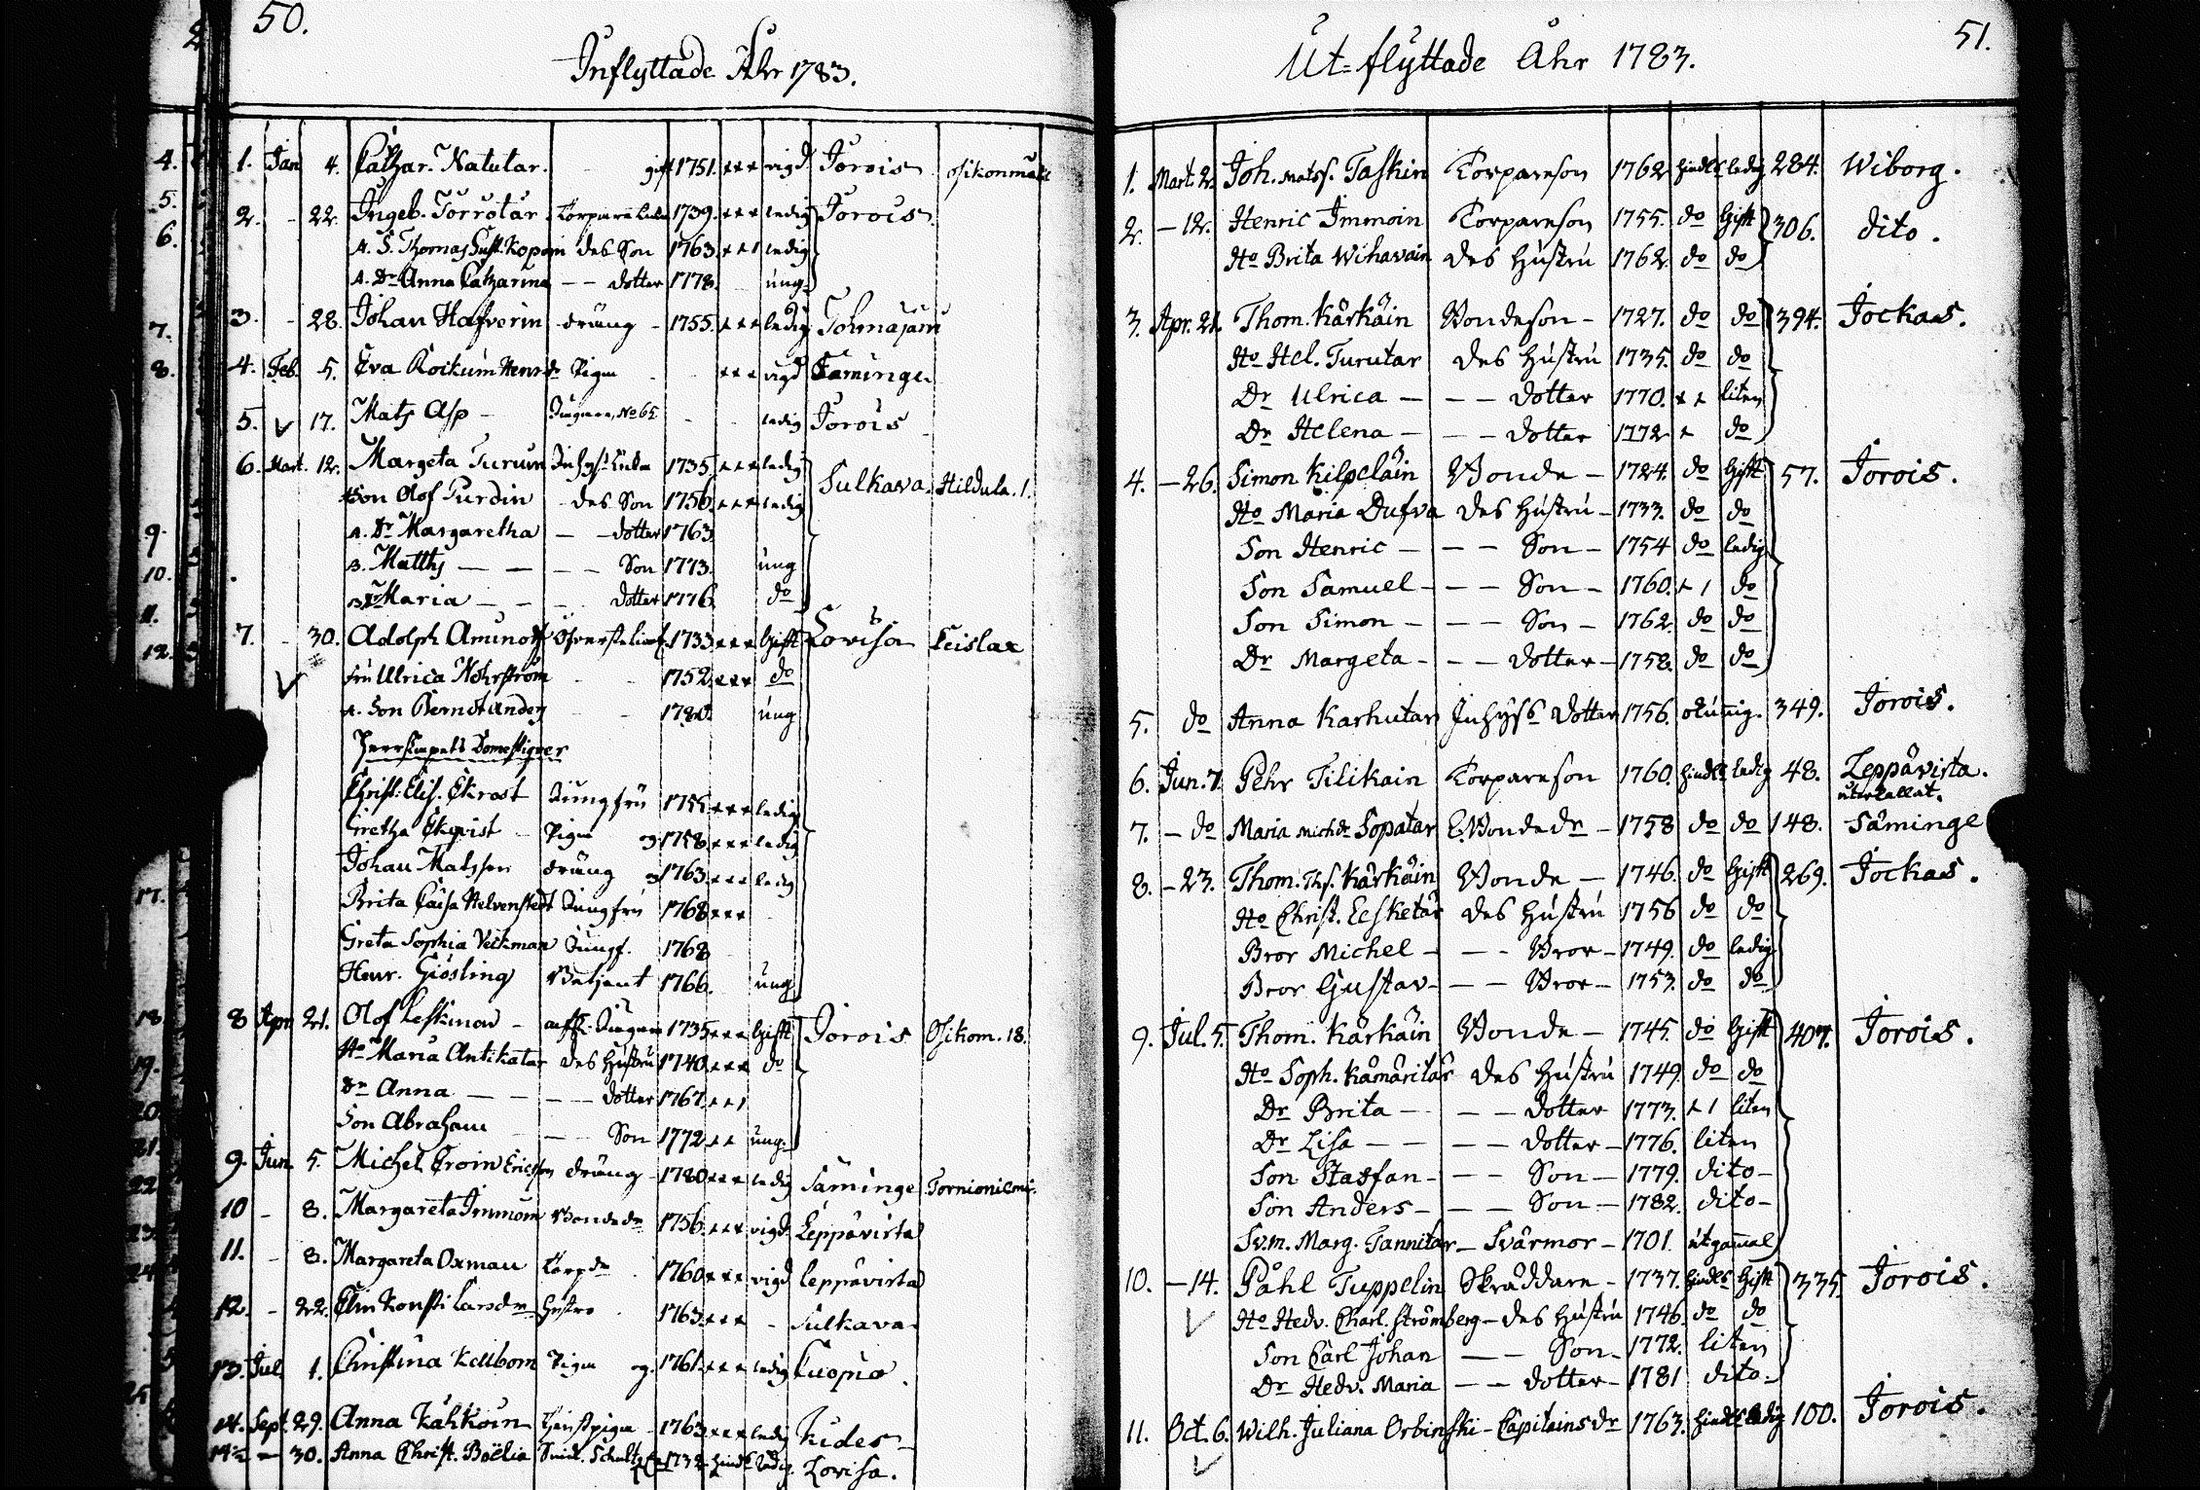 50.
Inflyttade Åhr 1783.
1. Jan 4. Cathar. Natutar. gift 1751. vigd Jorois
2. - 22. Ingeb. Torrotar 1739. ledig Jorois.
A. S. Thomas Gust. Kopoin des Son 1763. ledig
A. Dr Anna Catharina - - dotter 1778. ung
3. - 28. Johan Hafverin dräng - 1755. ledig Tohmajärvi
4. Feb. 5. Eva Rockum Henr.dr Piga vigd Säminge
5. 17. Mats Asp - No 65 ledig Jorois
6. Mart. 12. Margeta Turuin 1735. ledig Sulkava. Hildula. 1.
Son Olof Purdin des Son 1756. ledig
A. Dr Margaretha - - dotter 1763
B. Matths - - - - Son 1773. ung
B. Dr Maria - - - dotter 1776. do
7. - 30. Adolph Aminoff 1733. Gift Lovisa
Fru Ulrica Mohrström 1752. do
A. Son Berndt 1780. ung
Herrskapets Domestiquer
Christ. Elis. Ekrost Jungfru 1755. ledig
Gretha Ekqvist - Piga 1758. ledig
Johan Matsson dräng 1763. ledig
Brita Caisa Jungfru 1768
Greta Sophia Veckman Jungf. 1768
Henr. Giösling Betjent 1766. ung
8 Apr. 21. Olof Leskinen - 1735. Gift Jorois Osikom. 18.
Ho Maria Antikatar des Hustru 1740. do
Dr Anna - - - - dotter 1767.
Son Abraham - - Son 1772. ung.
9. Jun. 5. Michel Ericsson dräng - 1780 ledig Säminge
10 - 8. Margareta Immoin Bondedr 1756. vigd. Leppävirta
11. - 8. Margareta Oxman Torpdr 1760. vigd Leppävirta
12. - 22. Elin Larsdr Hustro 1763. - Sulkava
13. Jul. 1. Christina Kellbom Piga 1761. ledig Cuopio.
14. Sept. 29. Anna Kähköin 1763. ledig Kides
14½ - 30. Anna Christ. Boëlia Schultz 1732. ledig. Lovisa.
51.
Ut-flyttade Åhr 1783.
1. Mart. 2. Joh. Matss. Taskin Torpareson 1762 hindl. ledig 284. Wiborg.
2. - 12. Henric Immoin Torpareson 1755. do Gift 306. dito.
Ho Brita Wihavain des Hustru 1762. do do
3. Apr. 21. Thom. Kärkäin Bondeson - 1727. do do 394. Jockas.
Ho Hel. Turutar des Hustru 1735. do do
Dr Ulrica - - - dotter 1770. liten
Dr Helena - - - dotter 1772 do
4. - 26. Simon Kilpeläin Bonde - 1724. do Gift 57. Jorois.
Ho Maria Dufva des Hustru - 1733. do do
Son Henric - - - Son - 1754 do ledig
Son Samuel - - - Son - 1760. do
Son Simon - - - Son - 1762. do do
Dr Margeta - - - dotter - 1758. do do
5. do Anna Karhutar Inhyss dotter 1756. okunig. 349. Jorois.
6. Jun. 7. Pehr Tilikain Torpareson 1760. hindl. ledig 48. Leppävirta.
7. - do Maria Michdr Sopatar Bondedr - 1758 do do 148. Säminge
8. - 23. Thom. Ths. Kärkäin Bonde - 1746. do Gift 269. Jockas.
Ho Christ. Eesketär des Hustru 1756 do do
Bror Michel - - - Bror - 1749. do ledig
Bror Gustav - - - Bror - 1753. do do
9. Jul. 5. Thom. Kärkäin Bonde - 1745. do Gift 407. Jorois.
Ho Soph. Kämäritär des Hustru 1749. do do
Dr Brita - - - dotter 1773. liten
Dr Lisa - - - - dotter - 1776. liten
Son Staffan - - - Son - 1779. dito -
Son Anders - - - Son - 1782. dito -
Sv.m. Marg. Tannitar - Svärmor - 1701. utgammal
10. - 14. Påhl Tuppelin Skräddare - 1737. hindl. Gift 335. Jorois.
Ho Hedv. Charl. Strömberg - des Hustru 1746. do do
Son Carl Johan - - Son - 1772. liten
Dr Hedv. Maria - - dotter - 1781 dito -
11. Oct. 6. Wilh. Juliana Orbinski - Capitainsdr 1763. hindl. ledig 100. Jorois.